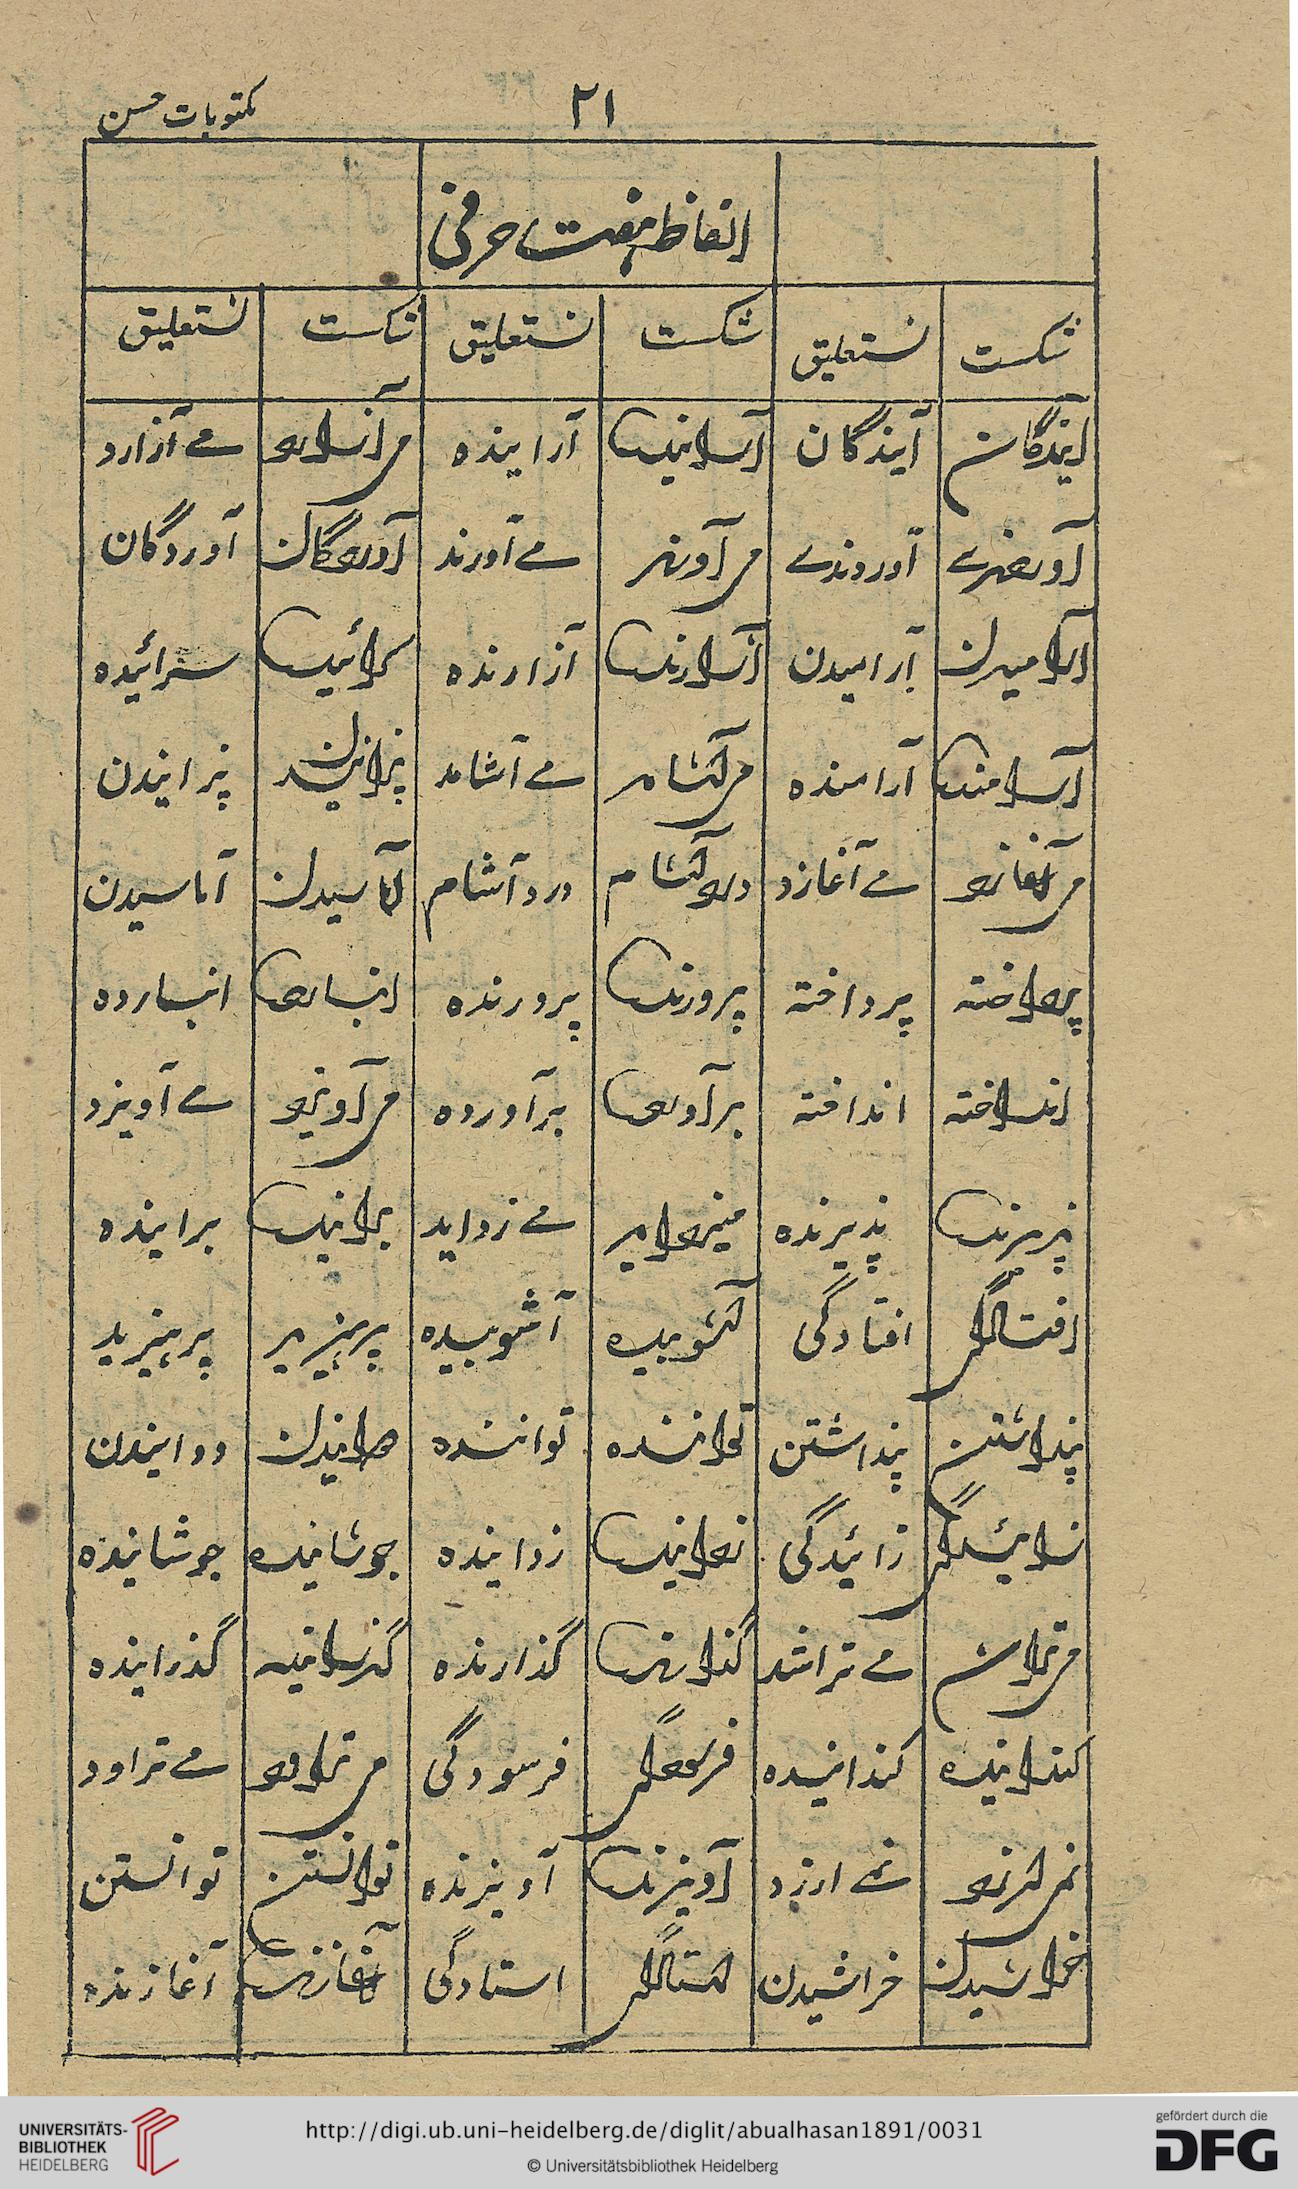 مکتوبات حسن
۲۱
الفاظ ہفت حرفی
شکست نستعلیق شکست نستعلیق شکست نستعلیق
آیندگان آیندگان آراینده آراینده می آزارد مے آزارد
آوردندے آوردندے می آورند مے آورند آوردگان آوردگان
آرامیدن آرامیدن آزارنده آزارنده سرائیده سرائیده
آرامنده آرامنده می آشامد مے آشامد پرانیدن پرانیدن
می آغازد مے آغازد درد آشام درد آشام آماسیدن آماسیدن
پرداخته پرداخته پرورنده پرورنده انبارده انبارده
انداخته انداخته برآورده برآورده می آویزد مے آویزد
پذیرنده پذیرنده میزداید مے زداید براینده براینده
افتادگی افتادگی آشوبیده آشوبیده پرہیزید پرہیزید
پنداشتن پنداشتن تواننده تواننده دوانیدن دوانیدن
زائیدگی زائیدگی زداینده زداینده جوشانیده جوشانیده
می تراشد مے تراشد گذارنده گذارنده گذراینده گذراینده
کندانیده کندانیده فرسودگی فرسودگی می تراود مے تراود
نمی ارزد نمے ارزد آویزنده آویزنده توانستن توانستن
خراشیدن خراشیدن استادگی استادگی آغازنده آغازنده
UNIVERSITÄTS-
BIBLIOTHEK
HEIDELBERG
http://digi.ub.uni-heidelberg.de/diglit/abualhasan1891/0031
© Universitätsbibliothek Heidelberg
gefördert durch die
DFG